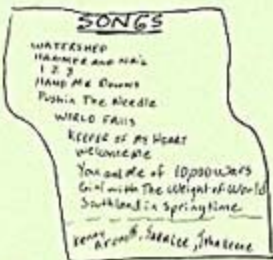 SONGS
WATERSHED
HAMMER AND NAIL
1 2 3
HAND ME DOWNS
Pushin The Needle
WORLD FALLS
KEEPER OF MY HEART
WELCOME ME
You and Me of 10,000 Wars
Girl with The Weight of World
Southland in Springtime
Kenny Aronoff,